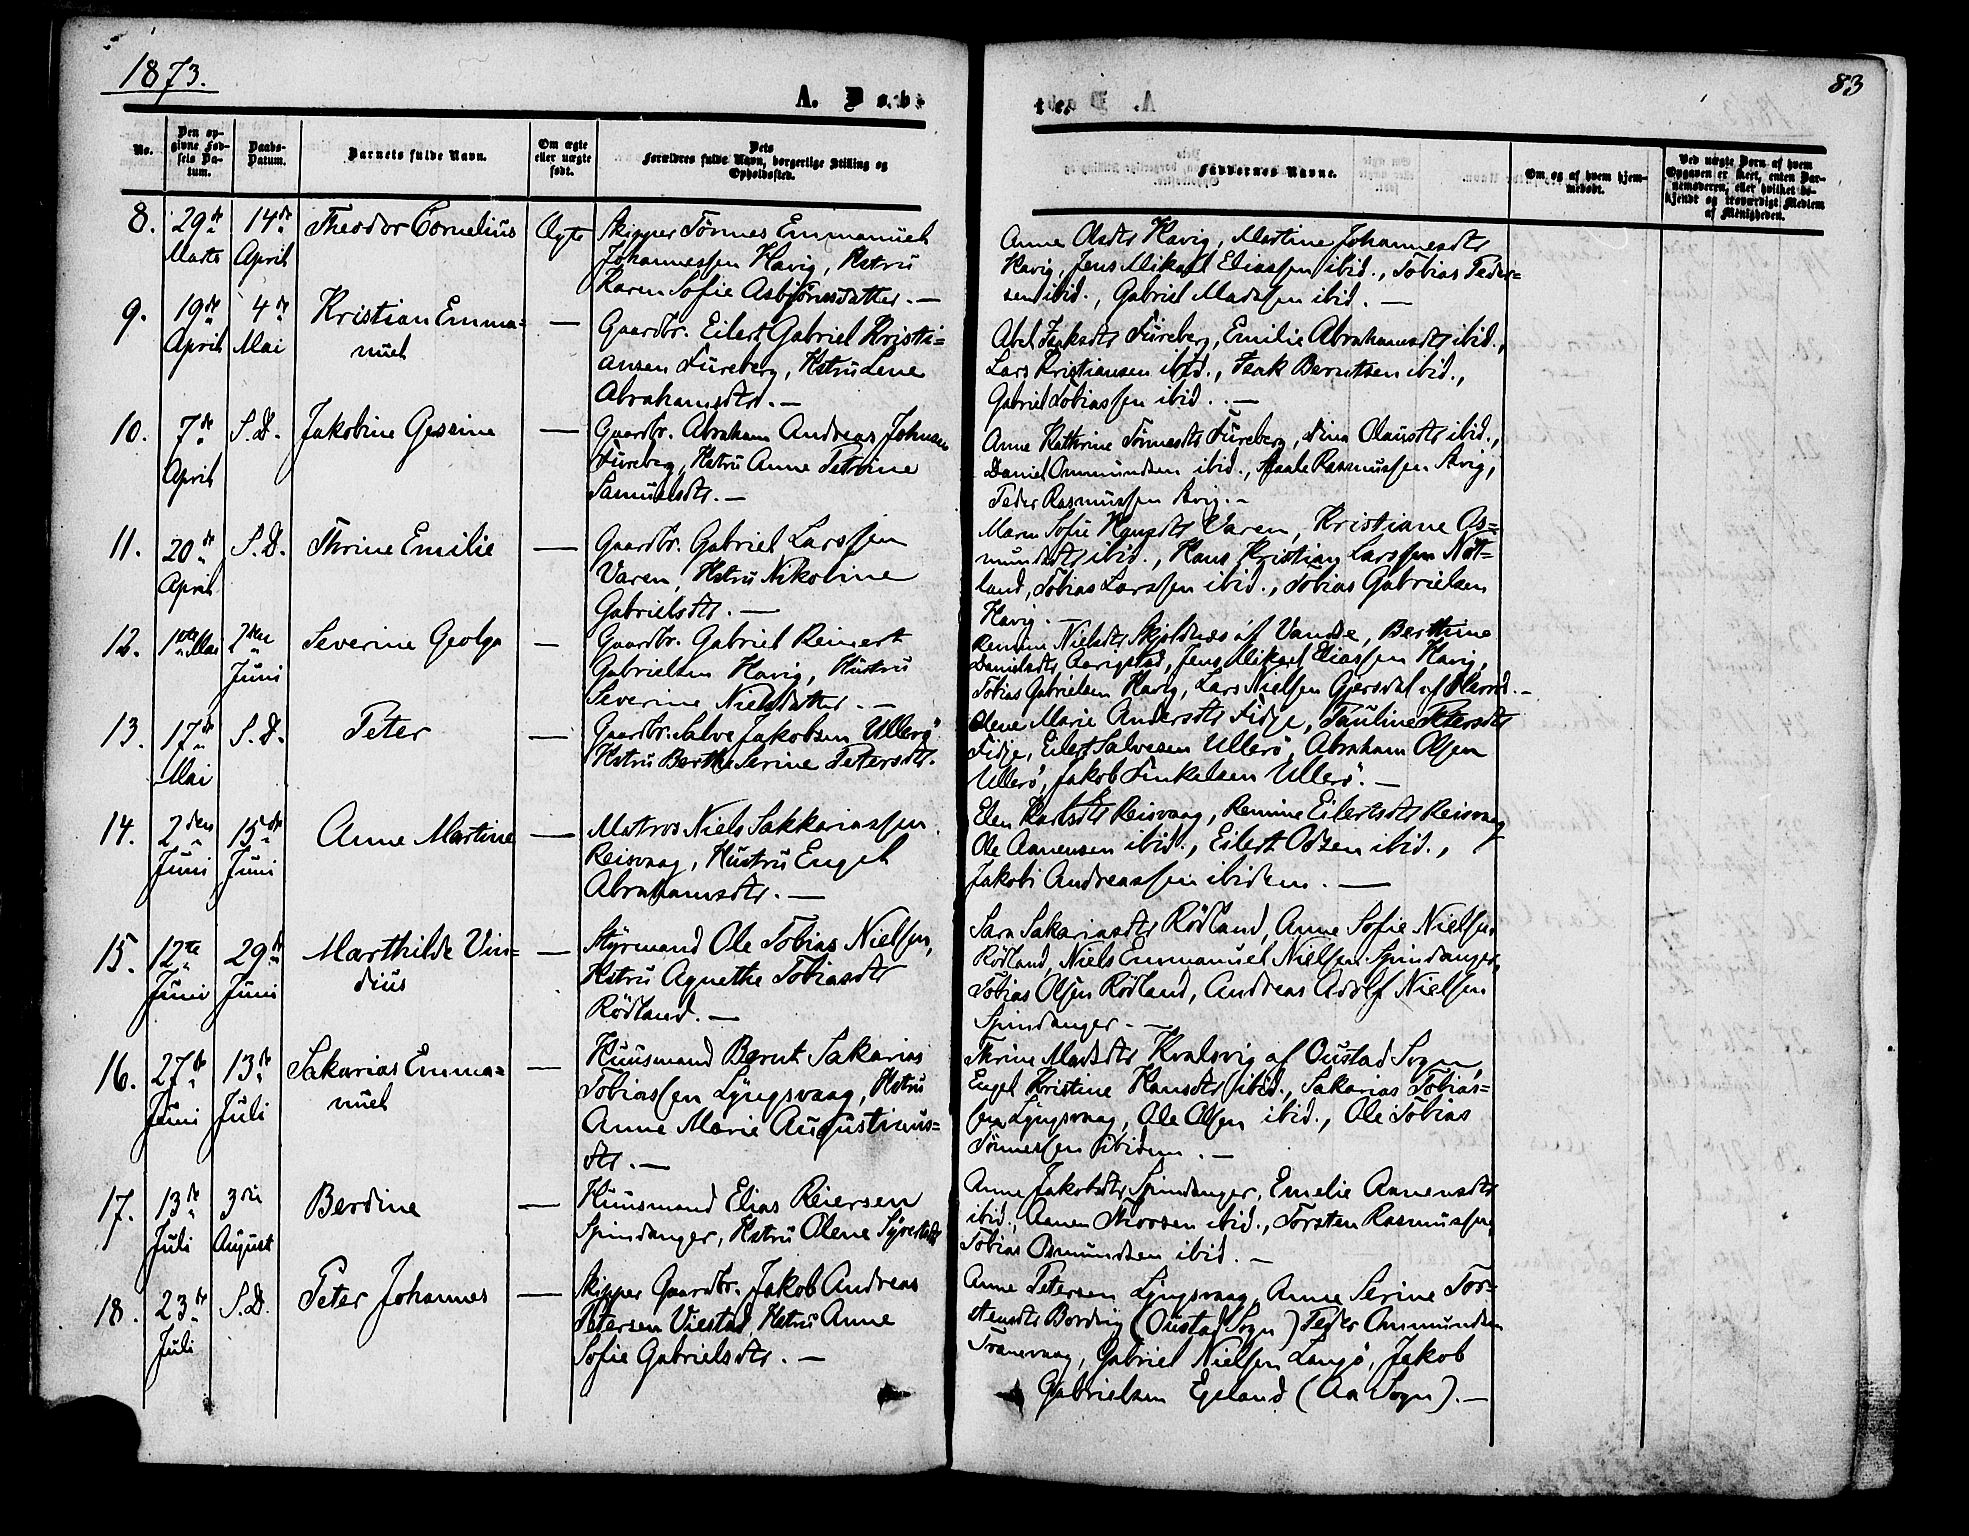 1873.
83
A. Døb-
te.
No.
Den op-
givne Fød-
sels Da-
tum.
Daabs-
Datum.
Barnets fulde Navn.
Om ægte
eller uægte
født.
Dets
Forældres fulde Navn, borgerlige Stilling og
Opholdssted.
Faddernes Navne.
Om og af hvem hjem-
medøbt.
Ved uægte Børn af hvem
Opgaven er skeet, enten Bar-
nemoderen, eller hvilket be-
kjendt og troværdigt Medlem
af Menigheden.
8. 29de Marts 14de April Theodor Cornelius Ægte
Skipper Tönnes Emmanuel
Johannessen Havig, Hstru
Karen Sofie Asbjörnsdatter. —
Anne Olsdtr Havig, Martine Johannesdtr
Havig, Jens Mikael Eliassen ibid., Tobias Peder-
sen ibid., Gabriel Madssen ibid. —
9. 19de April 4de Mai Kristian Emma-
nuel —
Gaardbr. Eilert Gabriel Kristi-
ansen Fureberg, Hstru Lene
Abrahamsdtr. —
Abel Isaksdtr Fureberg, Emilie Abrahamsdtr ibid.,
Lars Kristiansen ibid., Isak Berntsen ibid.,
Gabriel Tobiassen ibid. —
10. 7de April S.D. Jakobine Gesine —
Gaardbr. Abraham Andreas Johnsen
Fureberg, Hstru Anne Petrine
Samuelsdtr. —
Anne Kathrine Tönnesdtr Fureberg, Dina Olausdtr ibid.,
Daniel Ommundsen ibid., Staale Rasmussen Avig,
Peder Rasmussen Avig. —
11. 20de April S.D. Thrine Emilie —
Gaardbr. Gabriel Larssen
Varen, Hstru Nikoline
Gabrielsdtr. —
Maren Sofie Varen, Kristiane As-
mundsdtr ibid., Hans Kristian Larssen Nöt-
land, Tobias Larssen ibid., Tobias Gabrielsen
Havig. —
12. 1ste Mai 2den Juni Severine Geolga —
Gaardbr. Gabriel Reinert
Gabrielsen Havig, Hustru
Severine Nielsdatter. —
Remine Nielsdtr Skjoldnes af Vandse, Berthine
Danielsdtr Aarigstad, Jens Mikael Eliassen Havig,
Tobias Gabrielsen Havig, Lars Nielsen Gjersdal af Herred. —
13. 17de Mai S.D. Peter —
Gaardbr. Salve Jakobsen Ullerö
Hstru Berthe Serine Petersdtr.
Olene Marie Andersdtr Fidje, Pauline Petersdtr
Fidje, Eilert Salvesen Ullerö, Abraham Olsen
Ullerö, Jakob Finkelsen Ullerö. —
14. 2den Juni 15de Juni Anne Martine —
Matros Niels Sakkariassen
Reisvaag, Hustru Engel
Abrahamsdtr. —
Elen Karlsdtr Reisvaag, Remine Eilertsdtr Reisvaag
Ole Aanensen ibid., Eilert Odsen ibid.,
Jakob Andreassen ibidem. —
15. 12te Juni 29de Juni Marthilde Vin-
dius —
Styrmand Ole Tobias Nielsen,
Hstru Agnethe Tobiasdtr
Rödland. —
Sara Sakariasdtr Rödland, Anne Sofie Nielsen
Rödland, Niels Emmanuel Nielsen Spindanger,
Tobias Olsen Rödland, Andreas Adolf Nielsen
Spindanger. —
16. 27de Juni 13de Juli Sakarias Emma-
nuel —
Huusmand Bernt Sakarias
Tobiassen Lyngsvaag, Hstru
Anne Marie Augustinus-
dtr. —
Thrine Madsdtr Kvalsvig af Oustad Sogn,
Engel Kristine Hansdtr ibid., Sakarias Tobias-
sen Lyngsvaag, Ole Olsen ibid., Ole Tobias
Tönnessen ibidem. —
17. 13de Juli 3die August Berdine —
Huusmand Elias Reiersen
Spindanger, Hstru Olene Syvertsdtr
Anne Jakobsdtr Spindanger, Emelie Aanensdtr
ibid., Aanen Thorsen ibid., Torsten Rasmussen,
Tobias Osmundsen ibid. —
18. 23de Juli S.D. Peter Johannes —
Skipper Gaardbr. Jakob Andreas
Petersen Viestad, Hstru Anne
Sofie Gabrielsdtr. —
Anne Petersen Lyngsvaag, Anne Serine Tor-
stensdtr Bordvig (Oustad Sogn) Peder Ommundsen
Tranevaag, Gabriel Nielsen Langö, Jakob
Gabrielsen Egeland (Aa Sogn). —